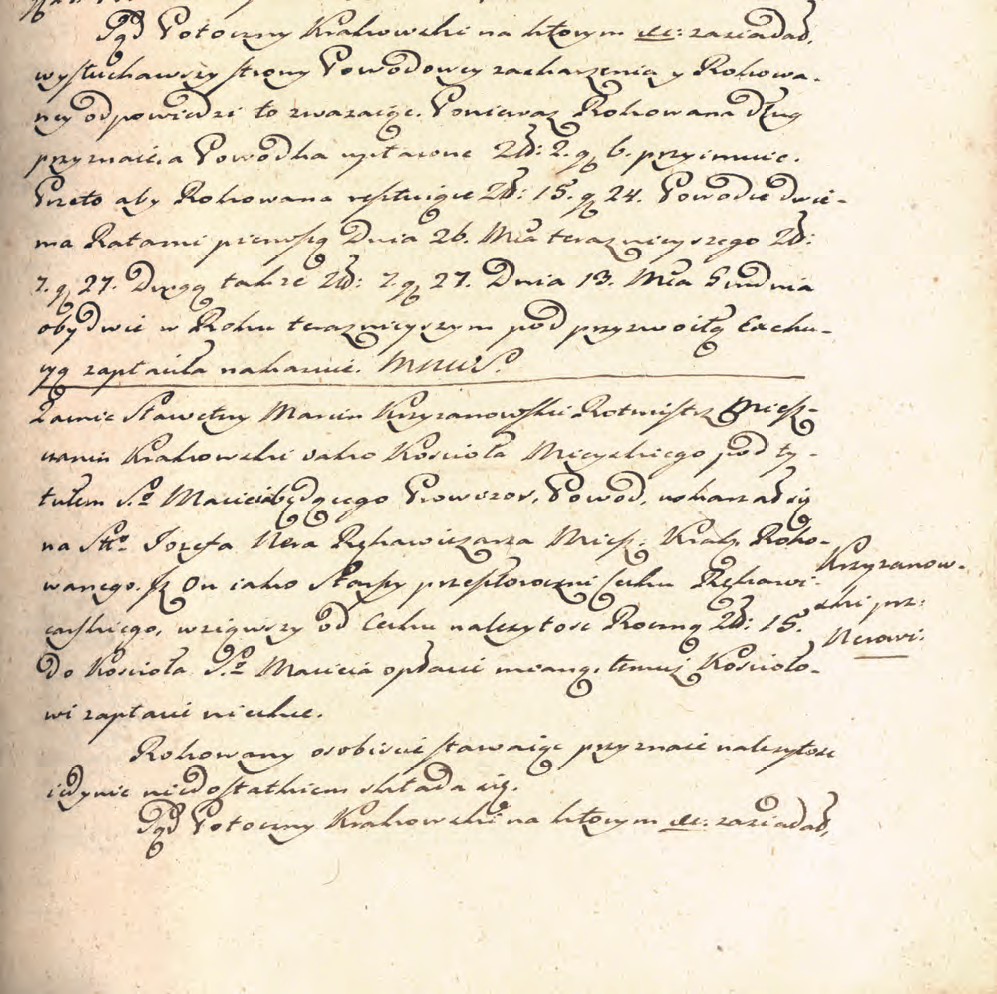 Sąd Potoczny Krakowski na którym etc: zasiadał,
wysłuchawszy strony Powodowey zaskarżenia y Pozwa-
ney odpowiedzi to zwazaiąc. Poniewaz Pozwana dług
przyznaie, a Powodka wpłacone Zł: 2. g 6. przyimuie.
Przeto aby Pozwana resztuiące Zł: 15. g 24. Powodce dwie-
ma Ratami pierwszą Dnia 26. Mca teraznieyszego Zł:
7. g 27. Drugą takze Zł: 7. g 27. Dnia 13. Mca Grudnia
obydwie w Roku teraznieyszym pod przyzwoitą Exeku-
cyą zapłaciła nakazuie.
Żalnie Sławetny Marcin Krzyzanowski Rotmistrz Miesz-
czanin Krakowski iako Kościoła Mieyskiego pod ty-
tułem S.º Macieia będącego Prowizor, Powod, uskarzał się
na Stt.º Jozefa Nera Rękawicznika Miesz: Krak: Pozwa-
wanego. Iż On iako Starszy przeszłoroczni Cechu Rękawi-
czarskiego, wziąwszy od Cechu nalezytość Roczną Zł: 15.
do Kościoła S.º Macieia opłacać mianą, temuż Kościoło-
wi zapłacić niechce.
Pozwany osobiście stawaiąc przyznaie nalezytość
iedynie niedostatkiem składa się.
Sąd Potoczny Krakowski na którym etc: zasiadał,
Krzyzanow-
ski prz:
Nerowi.